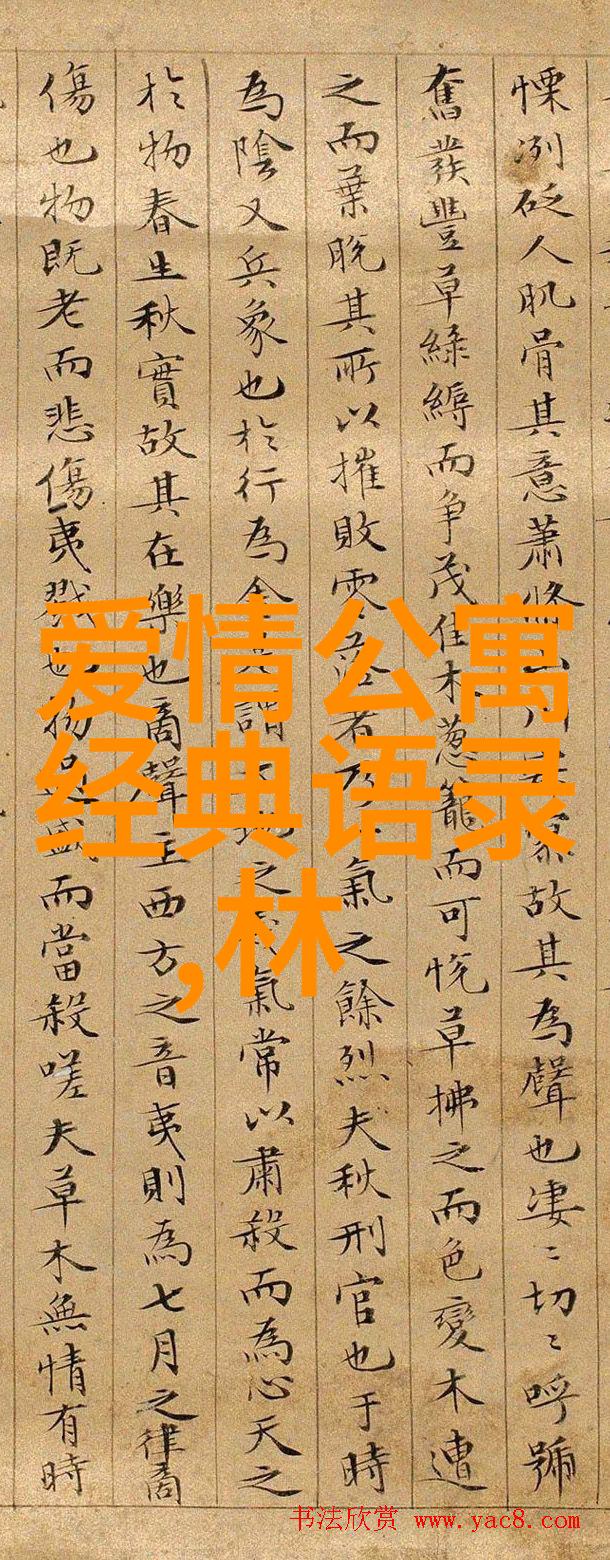 慄冽砭人肌骨其意蕭條故其為聲也凄〻切〻呼號
奮發豐草綠縟而爭茂佳木葱籠而可悅草拂之而色變木遭
之而葉脫其所以摧敗零落者氣之餘烈夫秋刑官也于時
為陰又兵象也於行為金謂之氣常以肅殺而為心天之
於物春生秋實故其在樂也商聲主西方之音夷則為七月之律商
傷也物既老而悲傷夷戮也物盛而當殺嗟夫草木無情有時
爱情公寓
经典语录
,林
书法欣赏 www.yac8.com